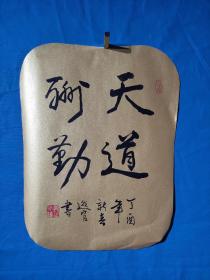 天道
酬勤
丁酉
年
新春
书